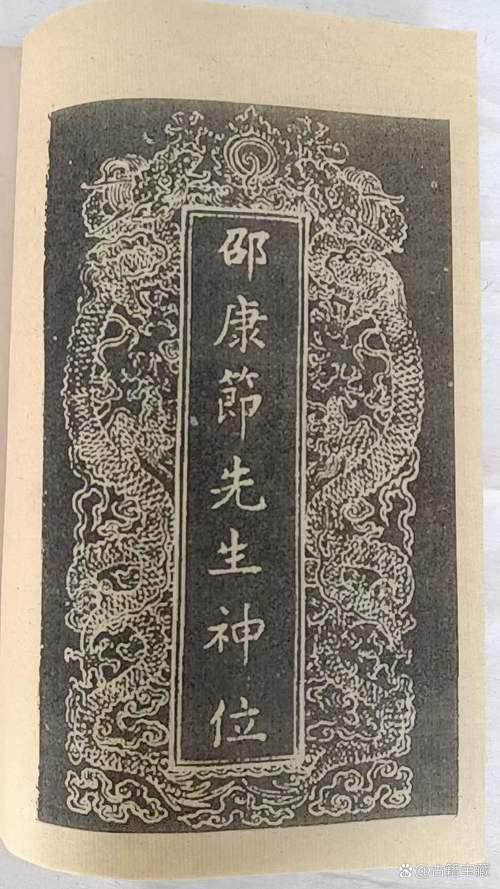 邵康節先生神位
@古籍宝藏